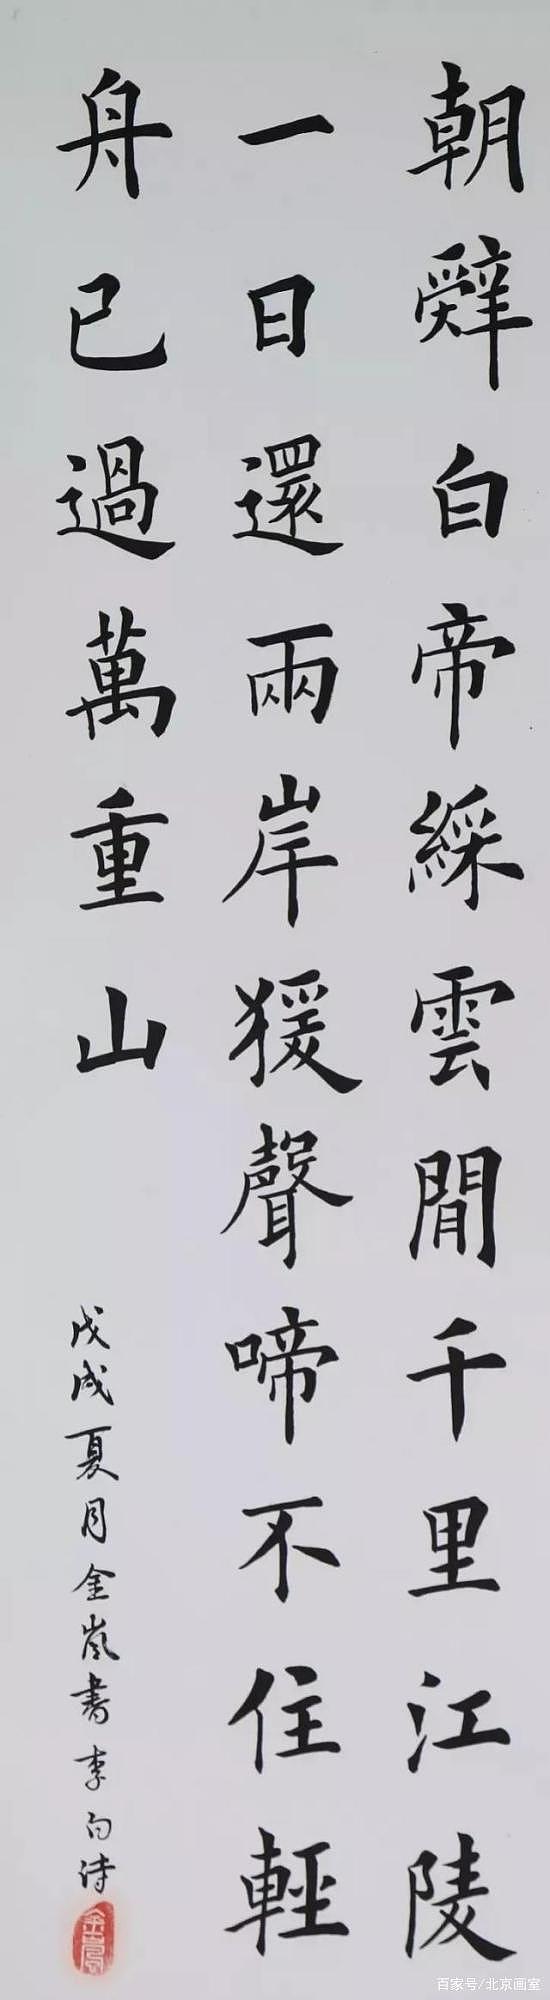 朝辤白帝綵雲閒千里江陵
一日還兩岸猨聲啼不住輕
舟已過萬重山
戊戌夏月金嵐書李白詩
金嵐
百家号/北京画室